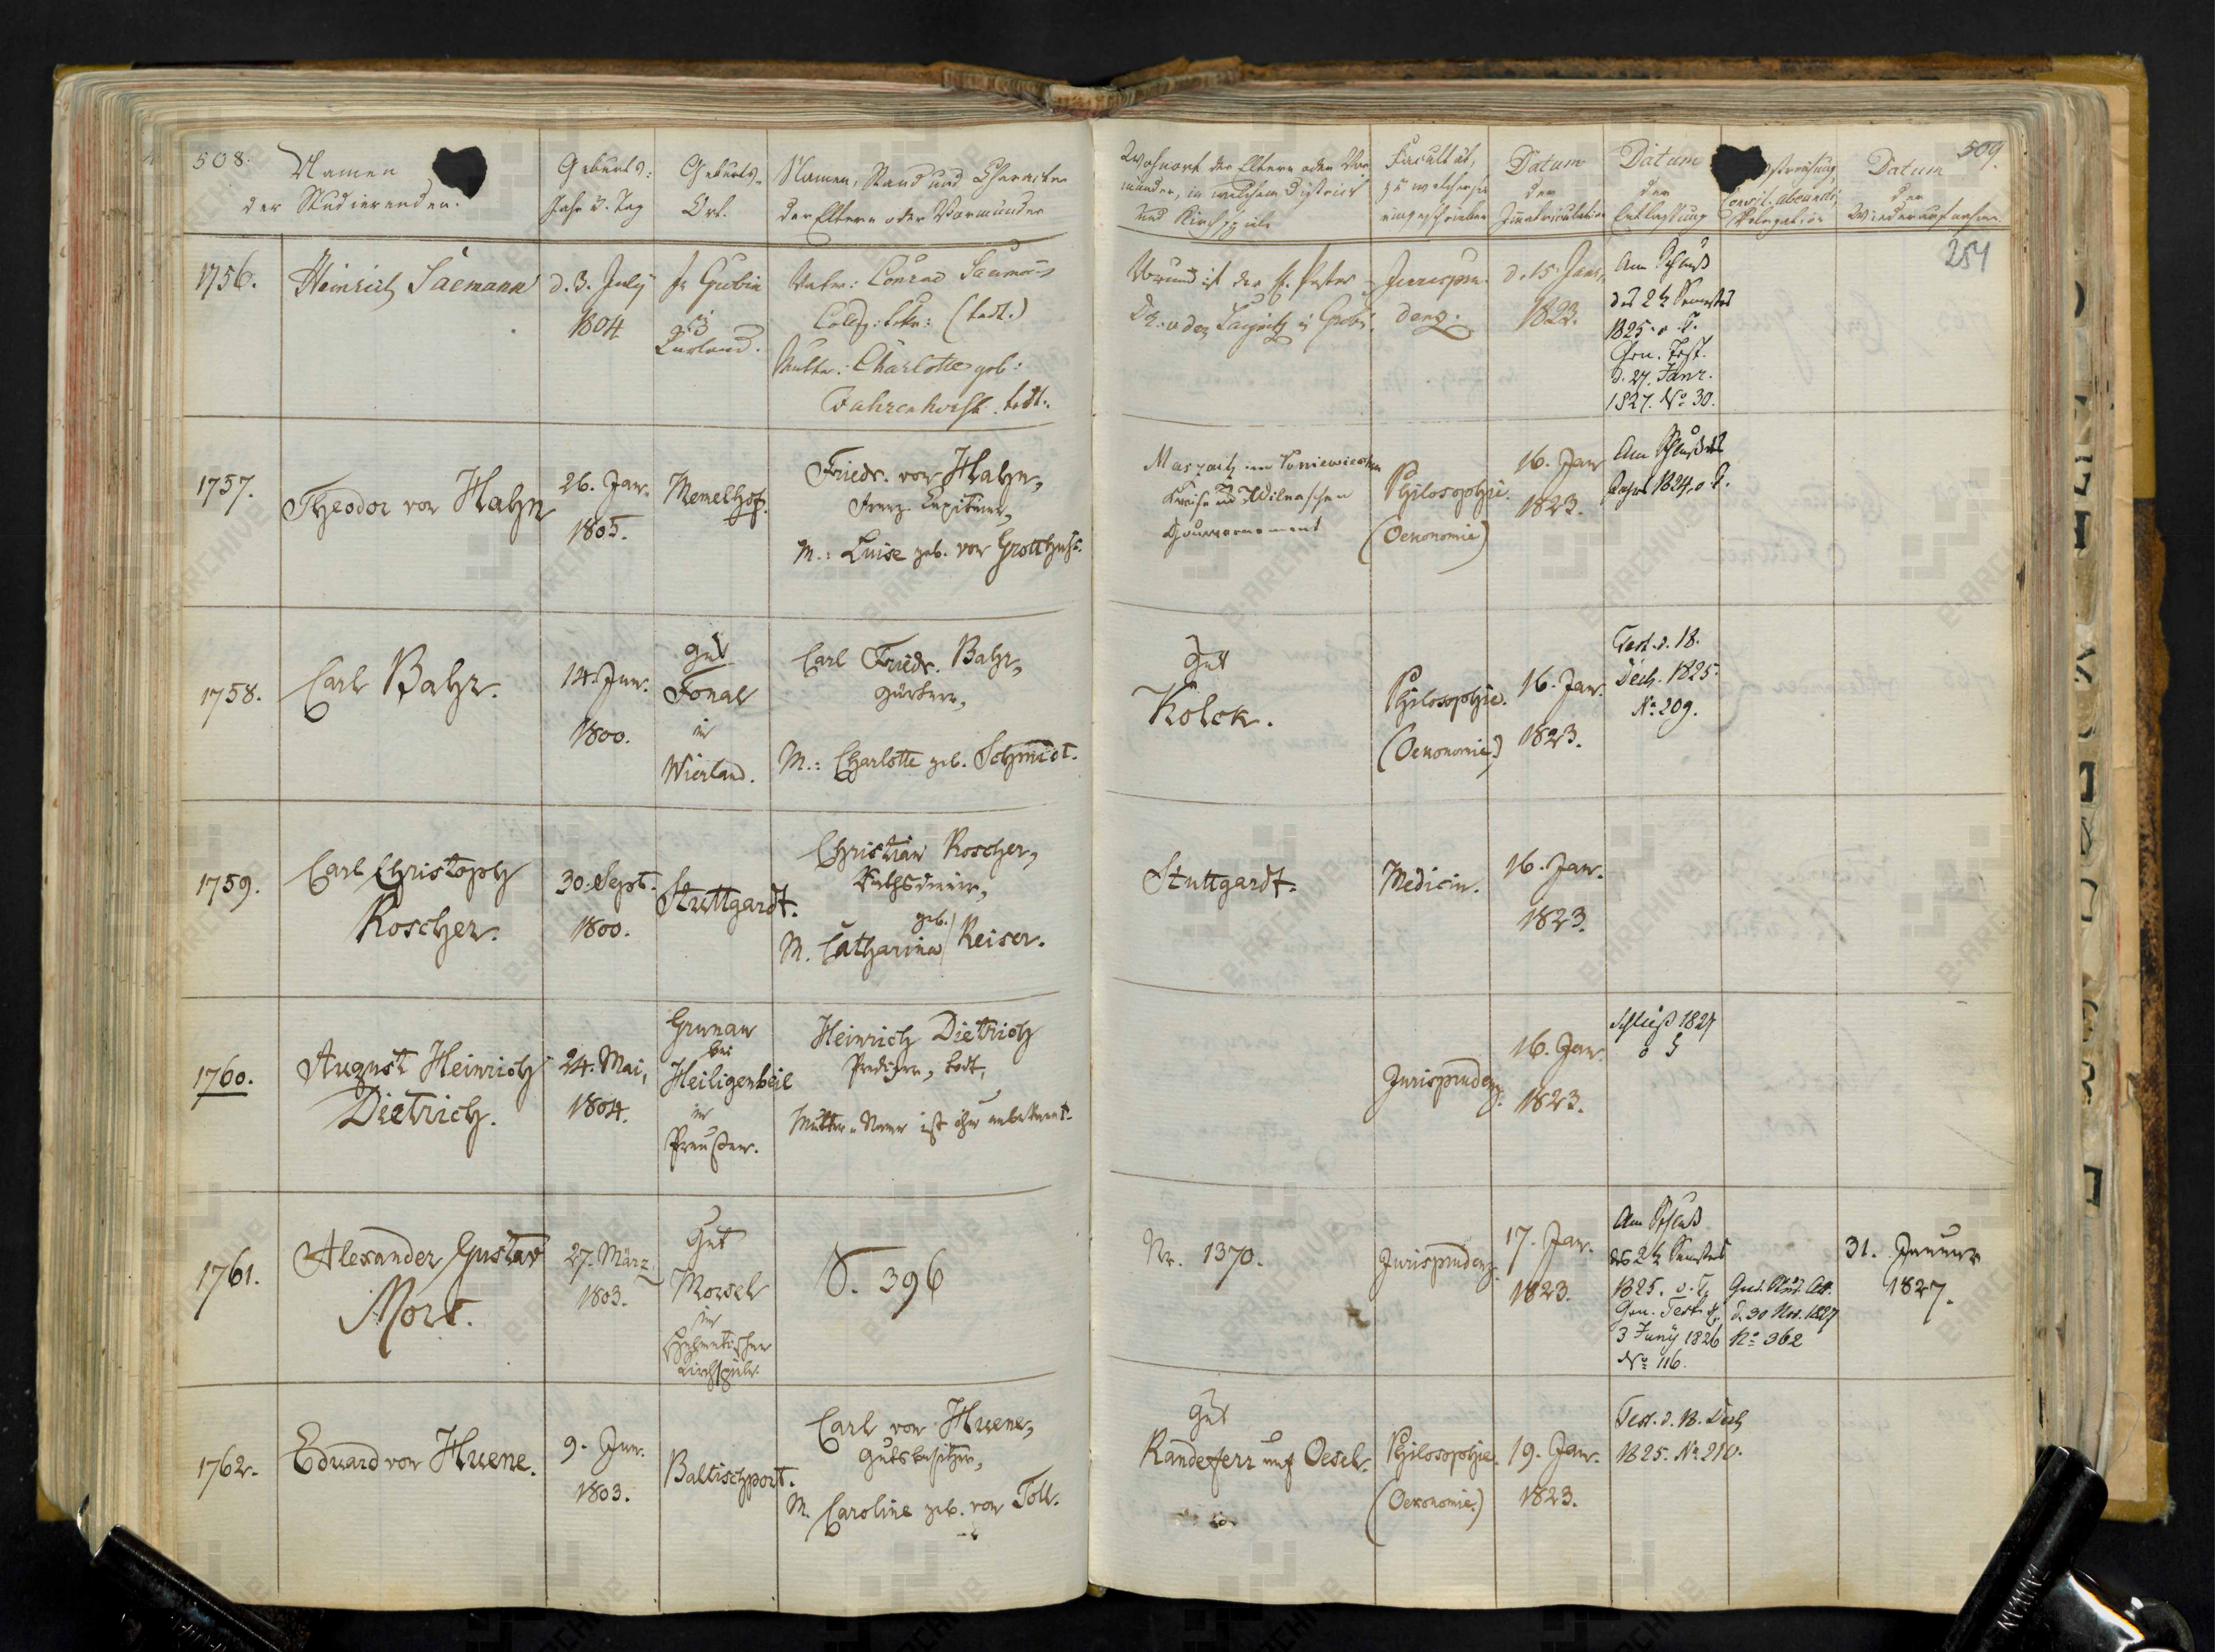 508.
Namen
der Studierenden.
Geburts-
Jahr u. Tag
Geburts-
Ort.
Namen, Stand und Character
der Eltern oder Vormünder
Wohnort der Eltern oder Vor-
münder, in welchem District
und Kirchspiele
Facultät,
zu welcher sie
eingeschrieben
Datum
der
Immatriculation
Datum
der
Entlassung
Consil. abeundi,
Relegation
Datum
der
Wiederaufnahme
509.
254
1756.
Heinrich Säemann
d. 3. July
1804
in
Curland.
Vater: Conrad
(todt.)
Mutter: Charlotte geb:
Fahrenhorst. todt.
Vormund ist der
Jurispru-
denz.
d. 15. Janr.
1823.
Am Schluß
des 2t Semesters
1825. o. T.
Gen. Test.
d. 27. Janr.
1827. No 30.
1757.
Theodor von Hahn
26. Jan.
1805.
Memelhof.
Friedr. von Hahn,
M.: Luise geb. von Grotthuss.
im
Kreise des Wilnaschen
Gouvernement
Philosophie.
(Oekonomie)
16. Jan
1823.
Am Schluß des
Jahres 1824. o. T.
1758.
Carl Bahr.
14. Jun.
1800.
Gut
Fonal
in
Wierland.
Carl Friedr. Bahr,
M.: Charlotte geb. Schmidt.
Gut
Kolck.
Philosophie.
(Oekonomie)
16. Jan.
1823.
Test. d. 18.
Dech. 1825.
No 209.
1759.
Carl Christoph
Roscher.
30. Sept.
1800.
Stuttgardt.
Christian Roscher,
Rathsdiener,
geb.
M. Catharina Reiser.
Stuttgardt.
Medicin.
16. Jan.
1823.
1760.
August Heinrich
Dietrich.
24. Mai,
1804.
Grunau
bei
Heiligenbeil
in
Preußen.
Heinrich Dietrich
Prediger, todt,
Mutter-Name ist ihm unbekannt.
Jurisprudenz.
16. Jan.
1823.
Schluß 1824
1761.
Alexander Gustav
Mors.
27. März
1803.
Gut
Morsel
im
Helmetschen
Kirchspiele.
S. 396
Nr. 1370.
Jurisprudenz.
17. Jan.
1823.
Am Schluß
des 2t Semesters
1825. o. T.
Gen. Test. d.
3 Juny 1826
No 116.
d. 30 Nov. 1827
No 362
31. Januar
1827.
1762.
Eduard von Huene.
9. Jun.
1803.
Baltischport.
Carl von Huene,
Gutsbesitzer,
M. Caroline geb. von Toll.
Gut
Randefer auf Oesel.
Philosophie.
(Oekonomie.)
19. Jan.
1823.
Test. d. 18. Dech
1825. No 210.